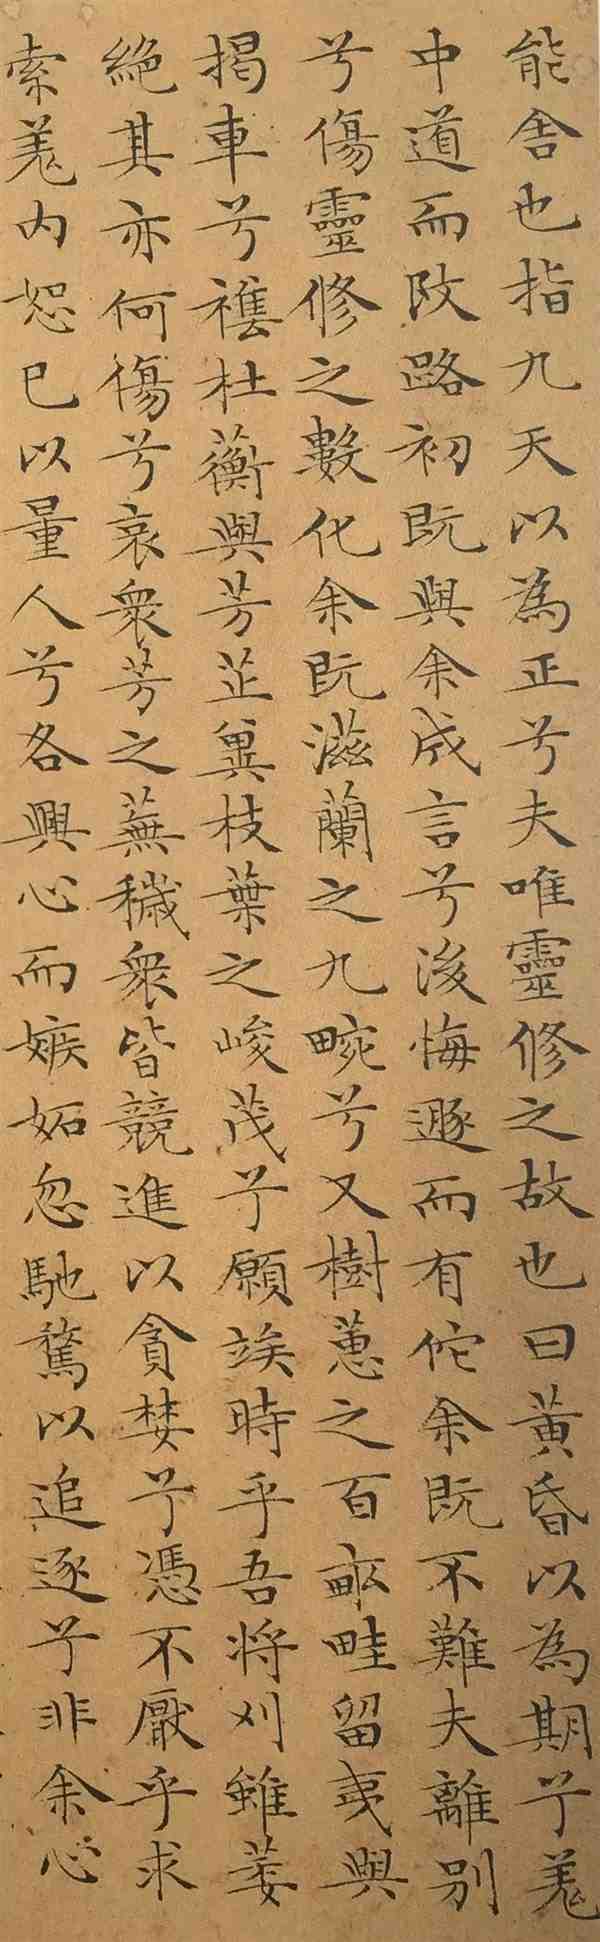 能舍也指九天以為正兮夫唯靈修之故也曰黃昏以為期兮羌
中道而改路初既與余成言兮後悔遯而有佗余既不難夫離別
兮傷靈修之數化余既滋蘭之九畹兮又樹蕙之百畝畦留夷與
揭車兮襍杜蘅與芳芷冀枝葉之峻茂兮願竢時乎吾將刈雖萎
絕其亦何傷兮哀衆芳之蕪穢衆皆競進以貪婪兮憑不厭乎求
索羌內恕己以量人兮各興心而嫉妬忽馳騖以追逐兮非余心